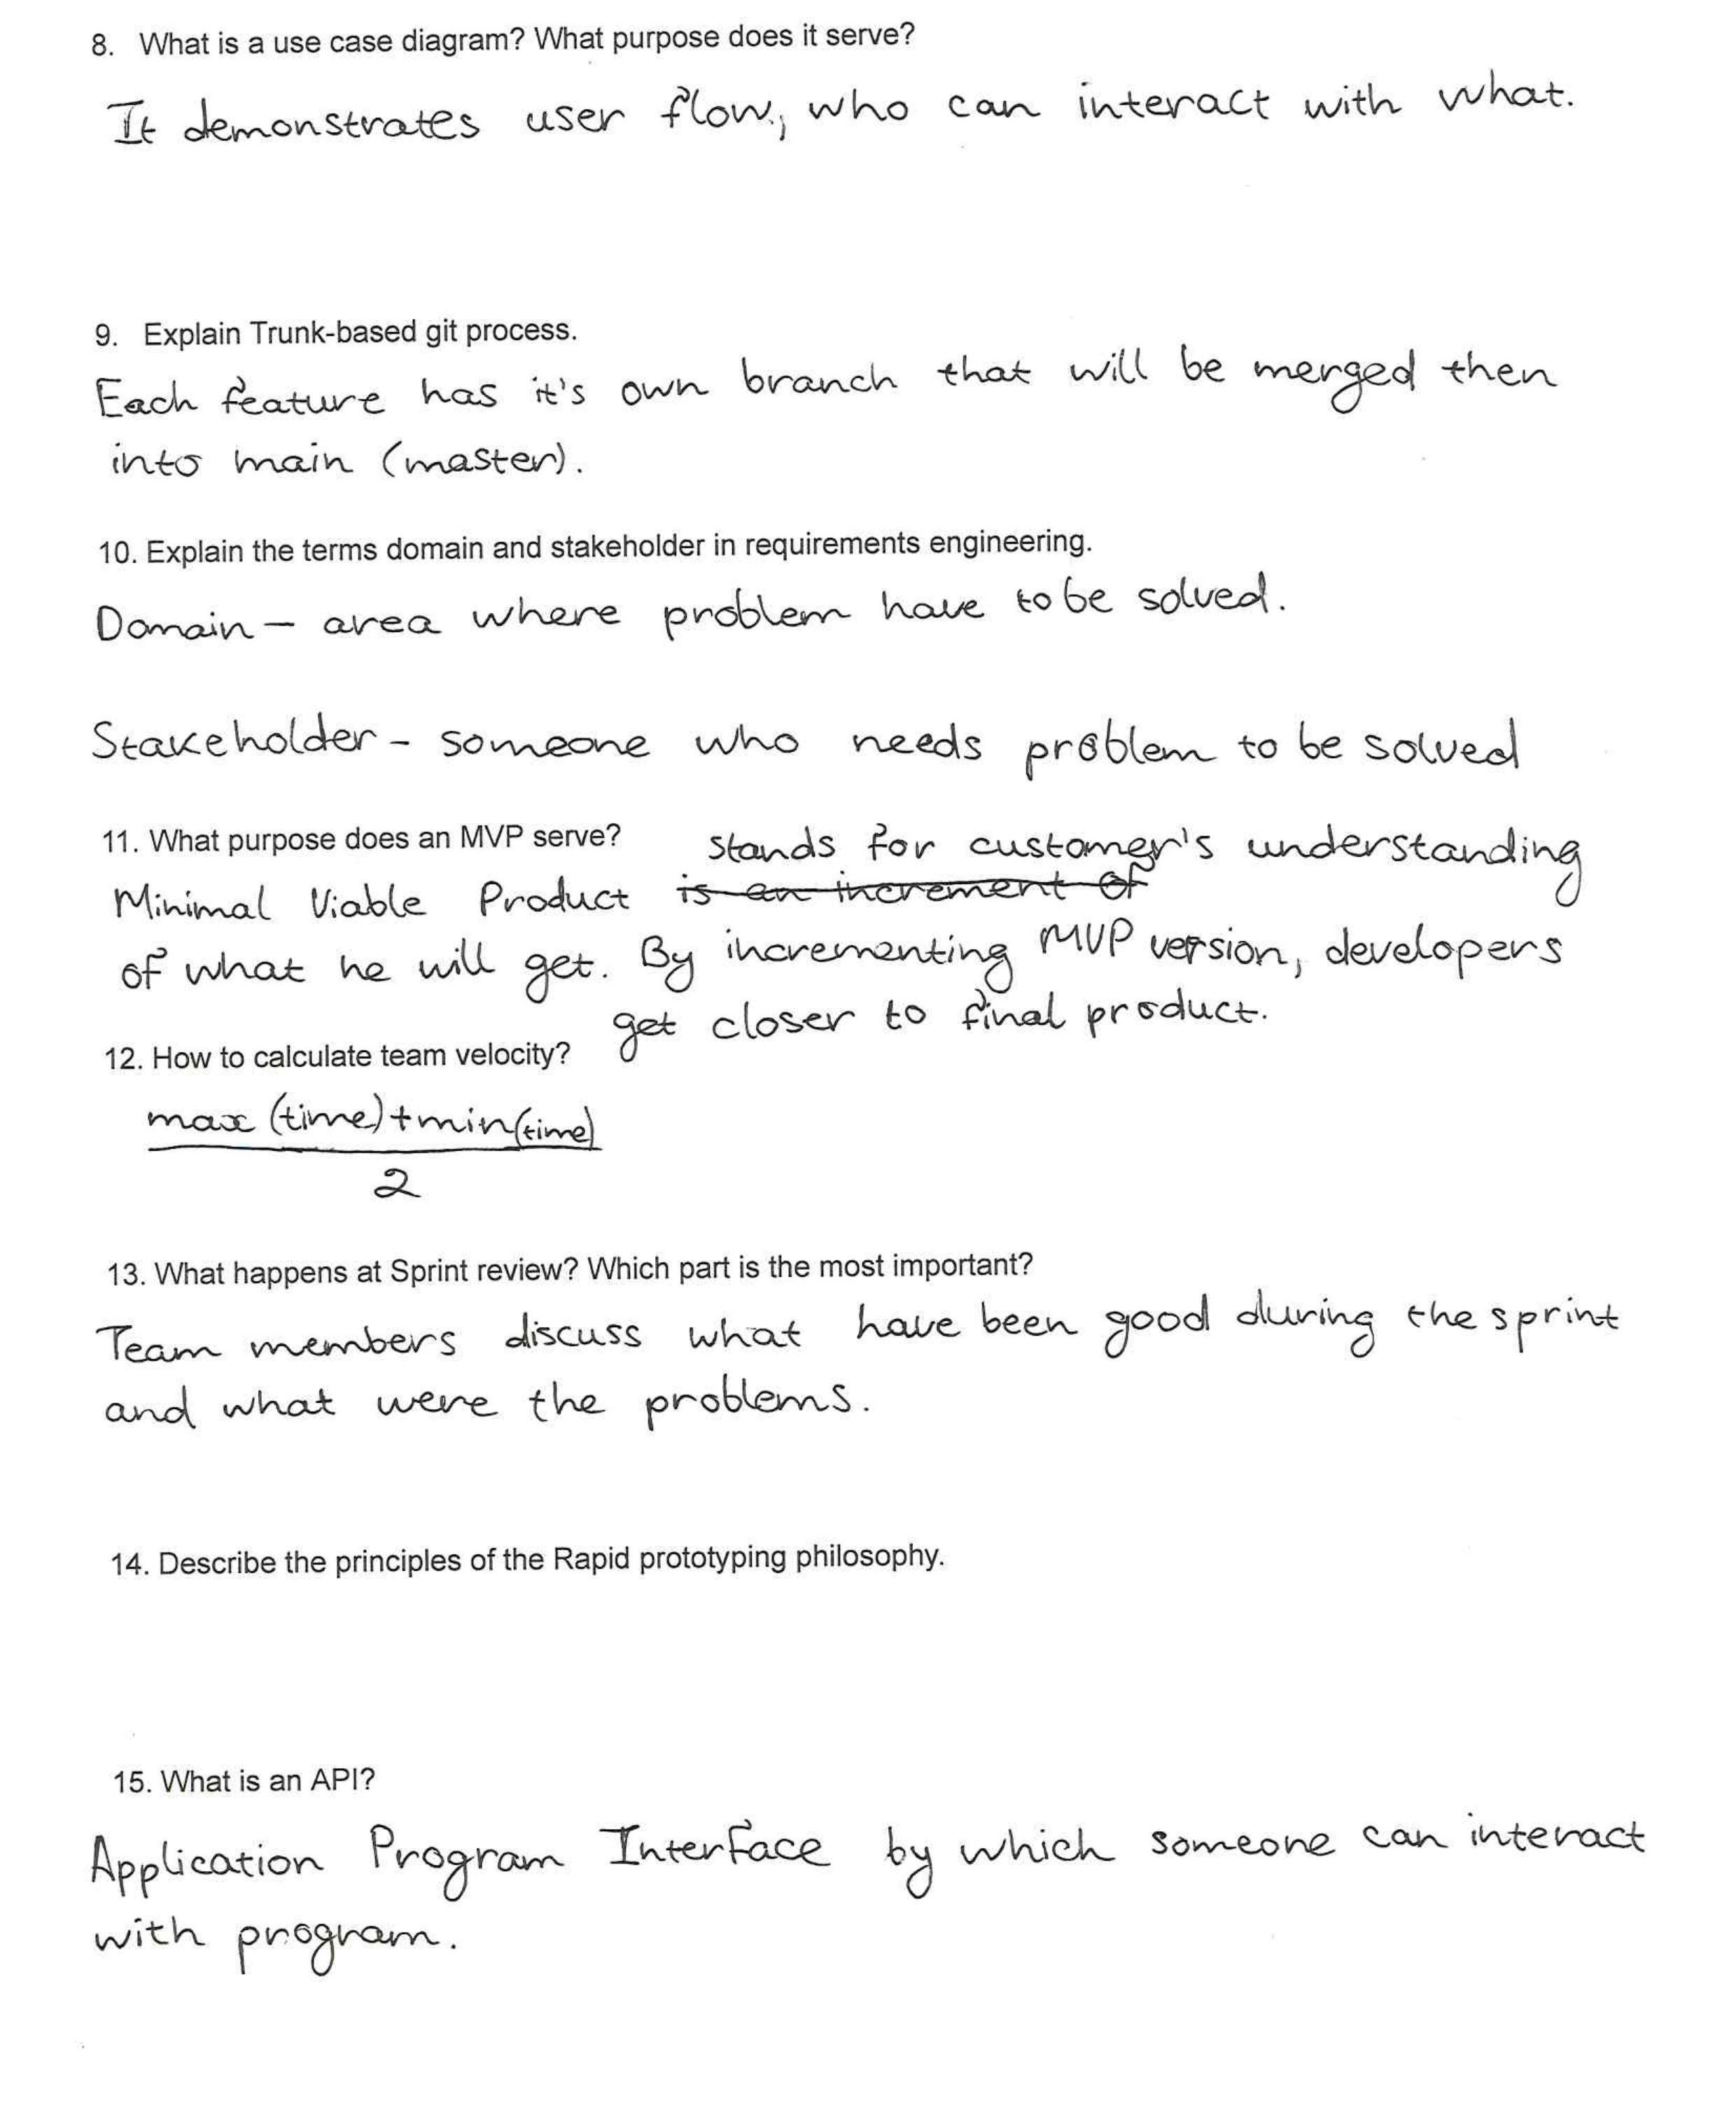 8. What is a use case diagram? What purpose does it serve?
It demonstrates user flow, who can interact with what.
9. Explain Trunk-based git process.
Each feature has it's own branch that will be merged then
into main (master).
10. Explain the terms domain and stakeholder in requirements engineering.
Domain – area where problem have to be solved.
Stakeholder – someone who needs problem to be solved
11. What purpose does an MVP serve?
stands for customer's understanding
Minimal Viable Product is an increment of
of what he will get. By incrementing MVP version, developers
get closer to final product.
12. How to calculate team velocity?
max (time) + min (time)
2
13. What happens at Sprint review? Which part is the most important?
Team members discuss what have been good during the sprint
and what were the problems.
14. Describe the principles of the Rapid prototyping philosophy.
15. What is an API?
Application Program Interface by which someone can interact
with program.